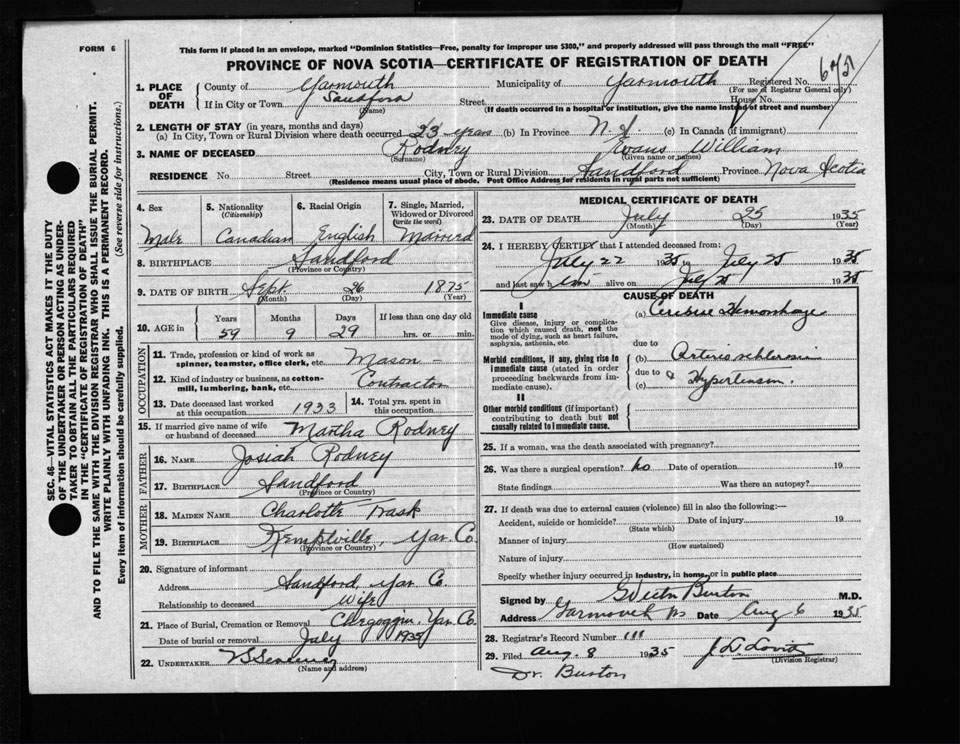 FORM 6
This form if placed in an envelope, marked "Dominion Statistics—Free, penalty for improper use $300," and properly addressed will pass through the mail "FREE"
PROVINCE OF NOVA SCOTIA—CERTIFICATE OF REGISTRATION OF DEATH
SEC. 46—VITAL STATISTICS ACT MAKES IT THE DUTY
OF THE UNDERTAKER OR PERSON ACTING AS UNDER-
TAKER TO OBTAIN ALL THE PARTICULARS REQUIRED
IN THE "CERTIFICATE OF REGISTRATION OF DEATH"
AND TO FILE THE SAME WITH THE DIVISION REGISTRAR WHO SHALL ISSUE THE BURIAL PERMIT.
WRITE PLAINLY WITH UNFADING INK. THIS IS A PERMANENT RECORD.
Every item of information should be carefully supplied. (See reverse side for instructions.)
1. PLACE OF DEATH County of Yarmouth Municipality of Yarmouth Registered No.
(For use of Registrar General only)
If in City or Town Sandford Street House No.
(Name) (If death occurred in a hospital or institution, give the name instead of street and number)
2. LENGTH OF STAY (in years, months and days)
(a) In City, Town or Rural Division where death occurred 23 years (b) In Province N.S. (c) In Canada (if immigrant)
3. NAME OF DECEASED Rodney Evans William
(Surname) (Given name or names)
RESIDENCE No. Street City, Town or Rural Division Sandford Province Nova Scotia
(Residence means usual place of abode. Post Office Address for residents in rural parts not sufficient)
4. Sex 5. Nationality (Citizenship) 6. Racial Origin 7. Single, Married, Widowed or Divorced (write the word)
Male Canadian English Married
8. BIRTHPLACE Sandford
(Province or Country)
9. DATE OF BIRTH Sept. 26 1875
(Month) (Day) (Year)
10. AGE in Years Months Days If less than one day old
59 9 29 hrs. or min.
OCCUPATION
11. Trade, profession or kind of work as spinner, teamster, office clerk, etc. Mason -
12. Kind of industry or business, as cotton-mill, lumbering, bank, etc. Contractor
13. Date deceased last worked at this occupation 1933 14. Total yrs. spent in this occupation
15. If married give name of wife or husband of deceased Martha Rodney
FATHER
16. NAME Josiah Rodney
17. BIRTHPLACE Sandford
(Province or Country)
MOTHER
18. MAIDEN NAME Charlotte Trask
19. BIRTHPLACE Kemptville, Yar. Co.
(Province or Country)
20. Signature of informant
Address Sandford, Yar Co.
Relationship to deceased Wife
21. Place of Burial, Cremation or Removal Yar. Co.
Date of burial or removal July 1935
22. UNDERTAKER
(Name and address)
MEDICAL CERTIFICATE OF DEATH
23. DATE OF DEATH July 25 1935
(Month) (Day) (Year)
24. I HEREBY CERTIFY that I attended deceased from:
July 22 1935 to July 25 1935
and last saw him alive on July 25 1935
CAUSE OF DEATH
I
Immediate cause
Give disease, injury or complication which caused death, not the mode of dying, such as heart failure, asphyxia, asthenia, etc.
(a)
due to
Morbid conditions, if any, giving rise to immediate cause (stated in order proceeding backwards from immediate cause).
(b)
due to &
(c) Hypertension.
II
Other morbid conditions (if important) contributing to death but not causally related to immediate cause.
25. If a woman, was the death associated with pregnancy?
26. Was there a surgical operation? No Date of operation 19
State findings Was there an autopsy?
27. If death was due to external causes (violence) fill in also the following:—
Accident, suicide or homicide? Date of injury 19
(State which)
Manner of injury
(How sustained)
Nature of injury
Specify whether injury occurred in industry, in home, or in public place
Signed by Burton M.D.
Address Date Aug 6 1935
28. Registrar's Record Number 111
29. Filed Aug. 8 1935
(Division Registrar)
Dr. Burton